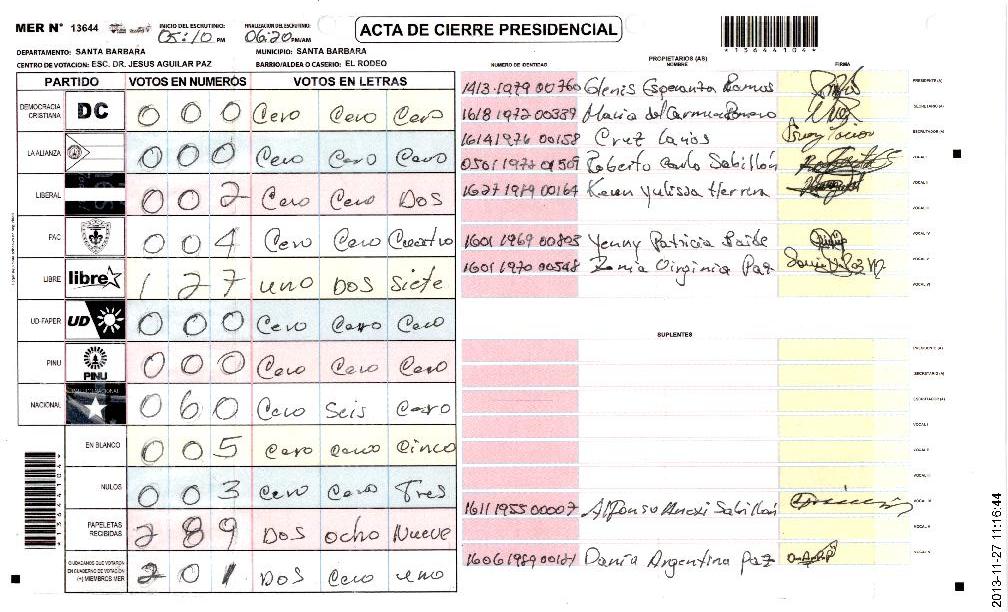 MER N° 13644 INICIO DEL ESCRUTINIO: 05:10 PM FINALIZACION DEL ESCRUTINIO: 06:20 PM/AM ACTA DE CIERRE PRESIDENCIAL
*13644104*
DEPARTAMENTO: SANTA BARBARA MUNICIPIO: SANTA BARBARA
CENTRO DE VOTACION: ESC. DR. JESUS AGUILAR PAZ BARRIO/ALDEA O CASERIO: EL RODEO
PARTIDO VOTOS EN NUMEROS VOTOS EN LETRAS
DEMOCRACIA CRISTIANA DC 0 0 0 Cero Cero Cero
LA ALIANZA 0 0 0 Cero Cero Cero
LIBERAL 0 0 2 Cero Cero Dos
PAC 0 0 4 Cero Cero Cuatro
LIBRE libre 1 2 7 uno Dos Siete
UD-FAPER UD 0 0 0 Cero Cero Cero
PINU PINU 0 0 0 Cero Cero Cero
NACIONAL 0 6 0 Cero Seis Cero
EN BLANCO 0 0 5 Cero Cero Cinco
NULOS 0 0 3 Cero Cero Tres
PAPELETAS RECIBIDAS 2 8 9 Dos ocho Nueve
CIUDADANOS QUE VOTARON EN CUADERNO DE VOTACION (+) MIEMBROS MER 2 0 1 Dos Cero uno
*13644104*
PROPIETARIOS (AS)
NUMERO DE IDENTIDAD NOMBRE FIRMA
1413 1979 00760 Glenis Esperanza Ramos PRESIDENTE(A)
1618 1972 00339 Maria del Carmen SECRETARIO(A)
1614 1976 00158 Cruz Larios ESCRUTADOR(A)
0501 1972 01509 Roberto Carlo Sabillón VOCAL I
1627 1989 00164 Karen Yulissa Herrera VOCAL II
VOCAL III
1601 1969 Yenny Patricia VOCAL IV
1601 1970 00548 Virginia Paz VOCAL V
VOCAL VI
SUPLENTES
PRESIDENTE (A)
SECRETARIO (A)
ESCRUTADOR (A)
VOCAL I
VOCAL II
VOCAL III
1611 1955 00007 Alfonso Sabillón VOCAL IV
VOCAL V
1606 1989 00181 Dania Argentina Paz VOCAL VI
2013-11-27 11:16:44